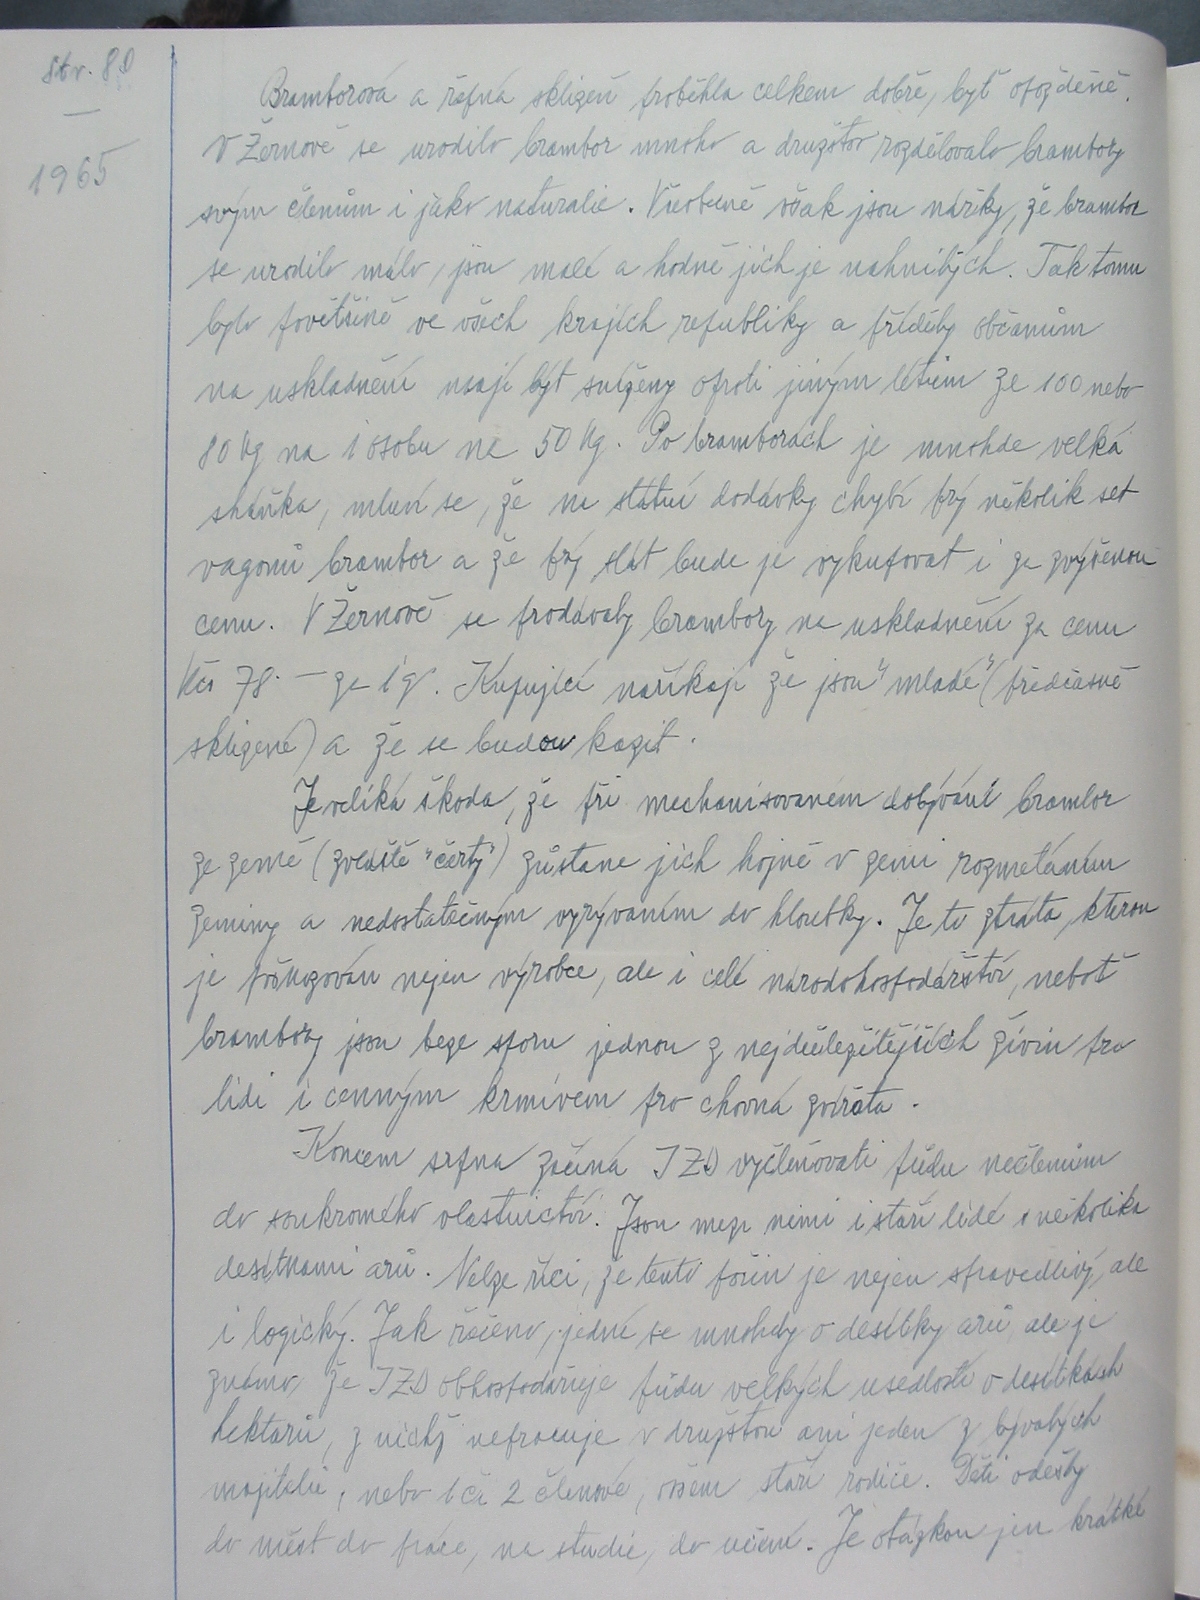 Str. 80
1965
Bramborová a řepná sklizeň proběhla celkem dobře, byť opožděně.
V Žernově se urodilo brambor mnoho a družstvo rozdělovalo brambory
svým členům i jako naturalie. Všeobecně však jsou nářky, že brambor
se urodilo málo, jsou malé a hodně jich je nahnilých. Tak tomu
bylo povětšině ve všech krajích republiky a příděly občanům
na uskladnění mají být sníženy oproti jiným létům ze 100 nebo
80 kg na 1 osobu na 50 kg. Po bramborách je mnohde velká
sháňka, mluví se, že na státní dodávky chybí prý několik set
vagonů brambor a že prý stát bude je vykupovat i za zvýšenou
cenu. V Žernově se prodávaly brambory na uskladnění za cenu
Kčs 78.— za 1 q. Kupující naříkají že jsou "mladé" (předčasně
sklizené) a že se budou kazit.
Je veliká škoda, že při mechanisovaném dobývání brambor
ze země (zvláště "čerty") zůstane jich hojně v zemi rozmetáním
zeminy a nedostatečným vyrýváním do hloubky. Je to ztráta, kterou
je poškozován nejen výrobce, ale i celé národohospodářství, neboť
brambory jsou beze sporu jednou z nejdůležitějších živin pro
lidi i cenným krmivem pro chovná zvířata.
Koncem srpna začíná JZD vyčleňovati půdu nečlenům
do soukromého vlastnictví. Jsou mezi nimi i staří lidé s několika
desítkami arů. Nelze říci, že tento počin je nejen spravedlivý, ale
i logický. Jak řečeno, jedná se mnohdy o desítky arů, ale je
známo, že JZD obhospodařuje půdu velkých usedlostí o desítkách
hektarů, z nichž nepracuje v družstvu ani jeden z bývalých
majitelů, nebo 1 či 2 členové, ovšem staří rodiče. Děti odešly
do měst do práce, na studie, do učení. Je otázkou jen krátké